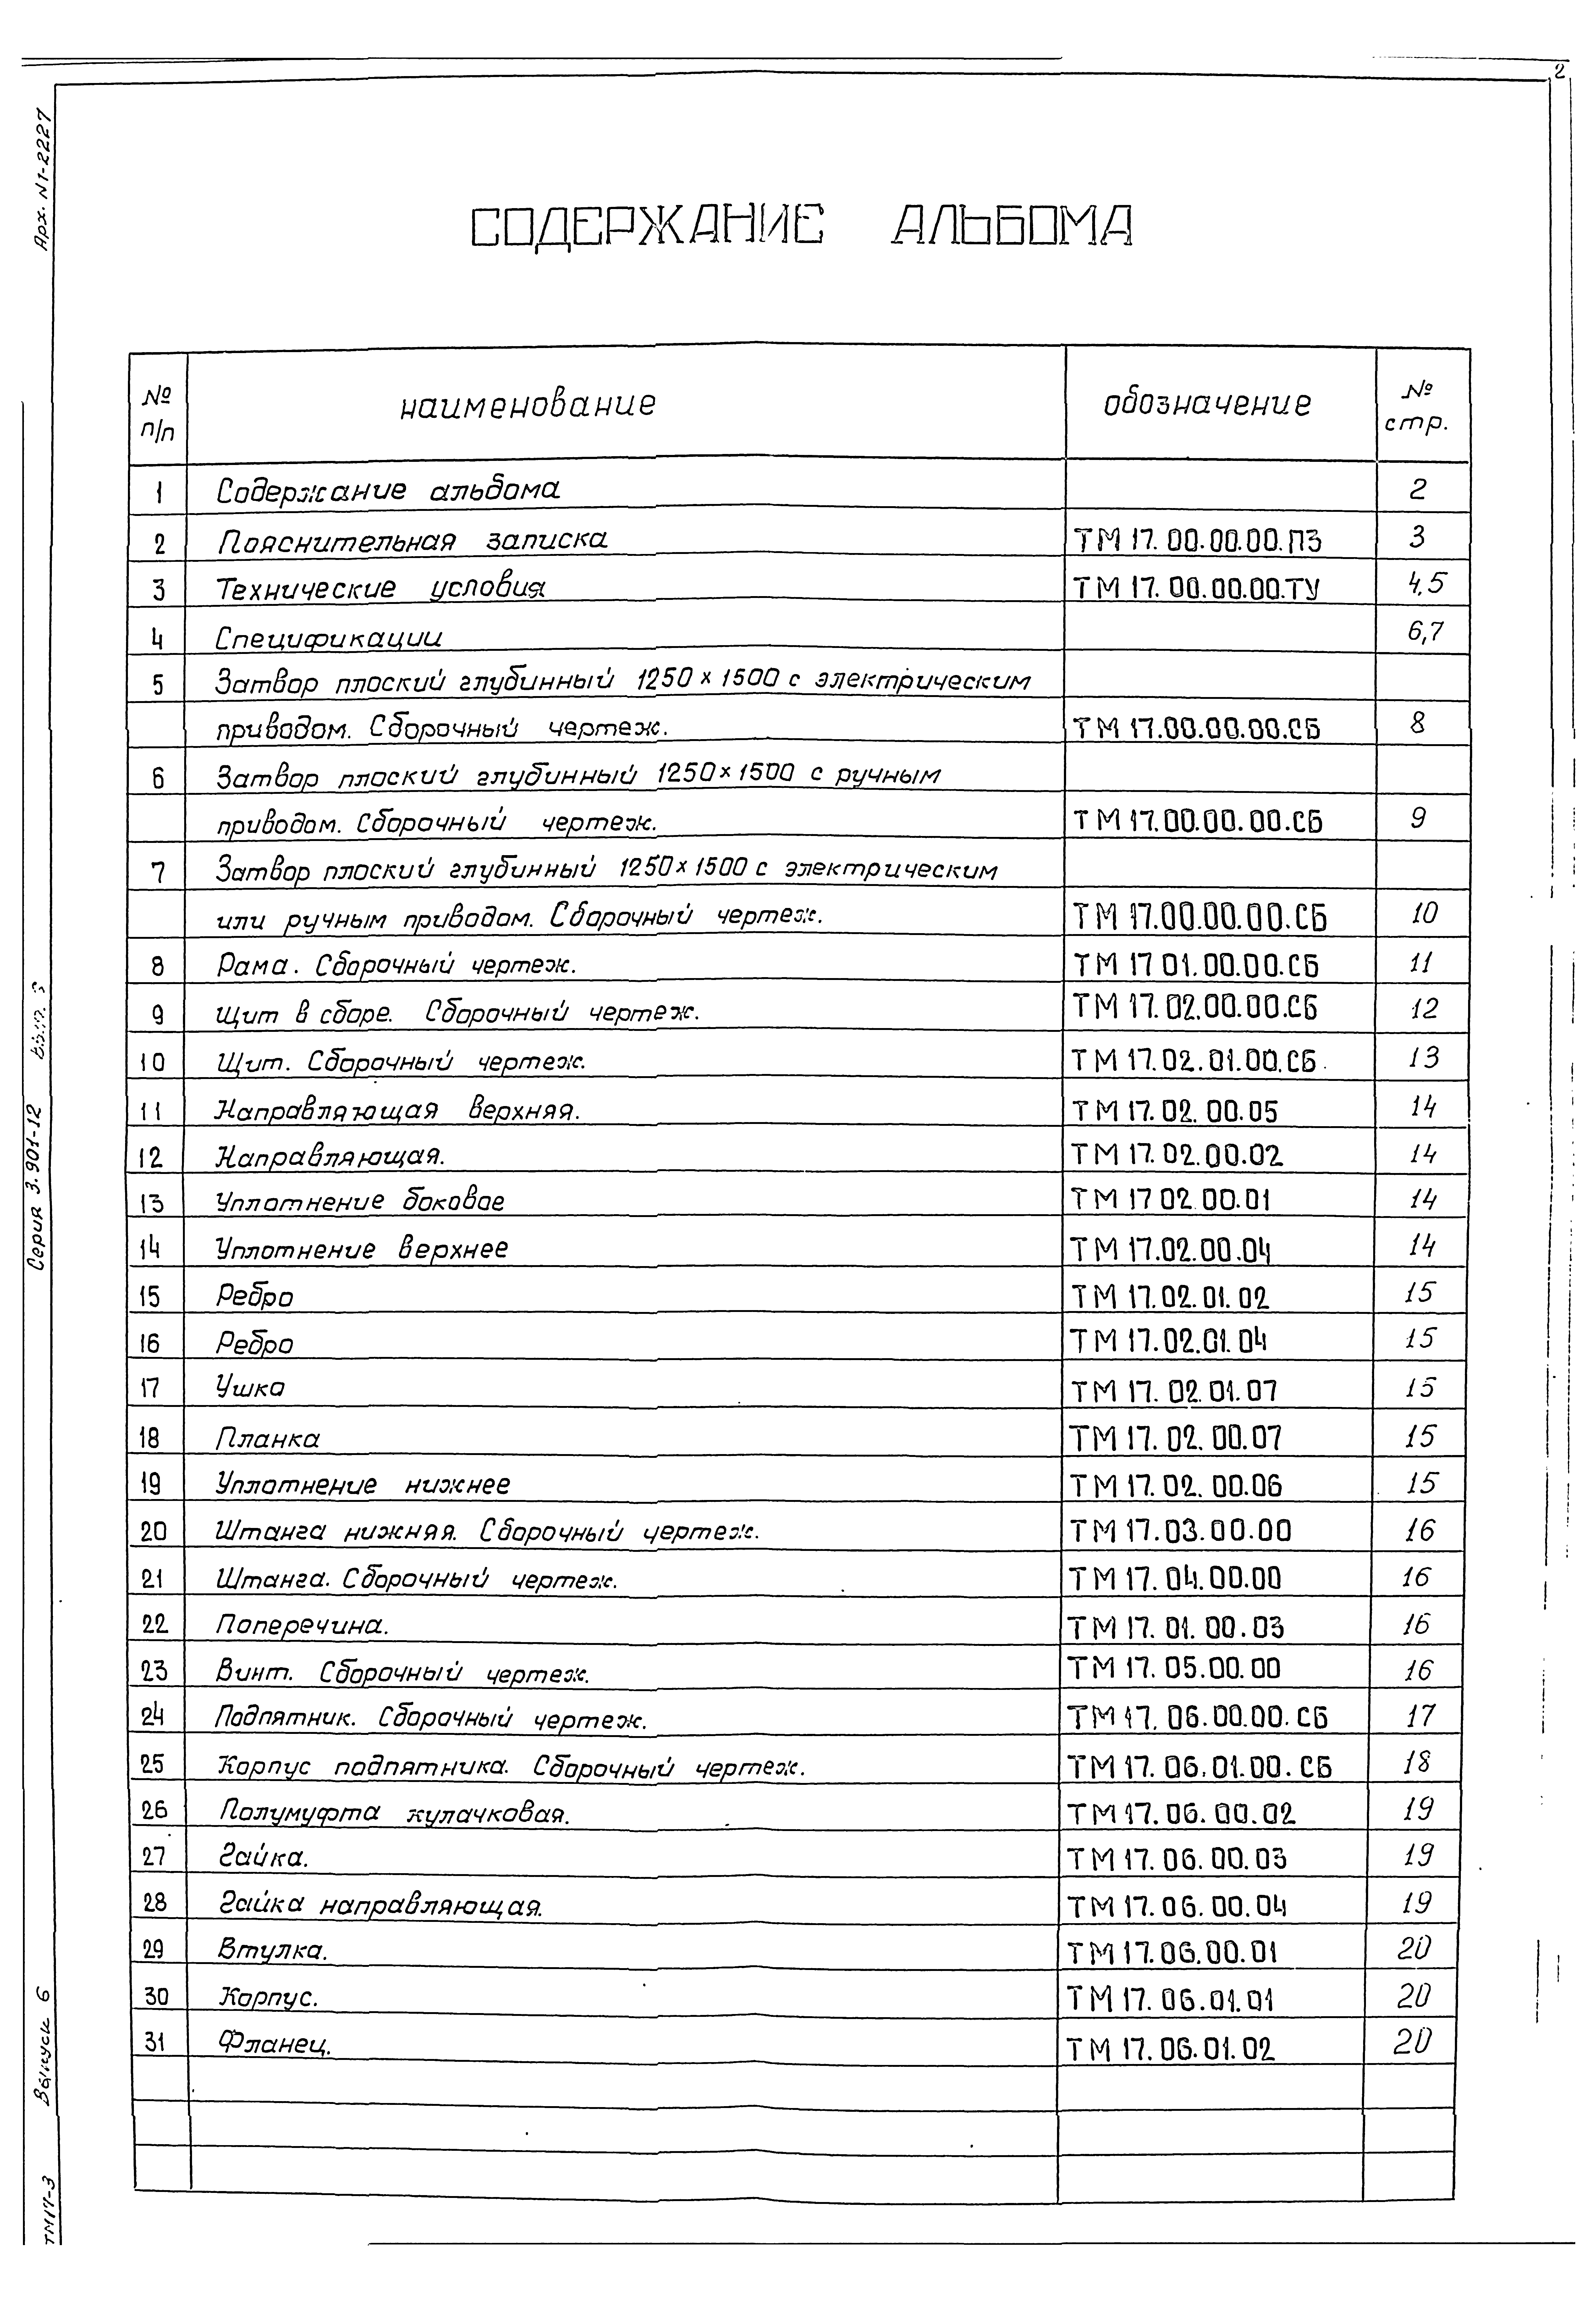 2
Арх. N1-2227
СОДЕРЖАНИЕ АЛЬБОМА
№ п/п наименование обозначение № стр.
1 Содержание альбома 2
2 Пояснительная записка ТМ 17.00.00.00.ПЗ 3
3 Технические условия ТМ 17.00.00.00.ТУ 4,5
4 Спецификации 6,7
5 Затвор плоский глубинный 1250×1500 с электрическим
приводом. Сборочный чертеж. ТМ 17.00.00.00.СБ 8
6 Затвор плоский глубинный 1250×1500 с ручным
приводом. Сборочный чертеж. ТМ 17.00.00.00.СБ 9
7 Затвор плоский глубинный 1250×1500 с электрическим
или ручным приводом. Сборочный чертеж. ТМ 17.00.00.00.СБ 10
8 Рама. Сборочный чертеж. ТМ 17 01.00.00.СБ 11
9 Щит в сборе. Сборочный чертеж. ТМ 17.02.00.00.СБ 12
10 Щит. Сборочный чертеж. ТМ 17.02.01.00.СБ. 13
11 Направляющая верхняя. ТМ 17.02.00.05 14
12 Направляющая. ТМ 17.02.00.02 14
13 Уплотнение боковое ТМ 17 02.00.01 14
14 Уплотнение верхнее ТМ 17.02.00.04 14
15 Ребро ТМ 17.02.01.02 15
16 Ребро ТМ 17.02.01.04 15
17 Ушко ТМ 17.02.01.07 15
18 Планка ТМ 17.02.00.07 15
19 Уплотнение нижнее ТМ 17.02.00.06 15
20 Штанга нижняя. Сборочный чертеж. ТМ 17.03.00.00 16
21 Штанга. Сборочный чертеж. ТМ 17.04.00.00 16
22 Поперечина. ТМ 17.01.00.03 16
23 Винт. Сборочный чертеж. ТМ 17.05.00.00 16
24 Подпятник. Сборочный чертеж. ТМ 17.06.00.00.СБ 17
25 Корпус подпятника. Сборочный чертеж. ТМ 17.06.01.00.СБ 18
26 Полумуфта кулачковая. ТМ 17.06.00.02 19
27 Гайка. ТМ 17.06.00.03 19
28 Гайка направляющая. ТМ 17.06.00.04 19
29 Втулка. ТМ 17.06.00.01 20
30 Корпус. ТМ 17.06.01.01 20
31 Фланец. ТМ 17.06.01.02 20
Серия 3.901-12
ТМ17-3 Выпуск 6